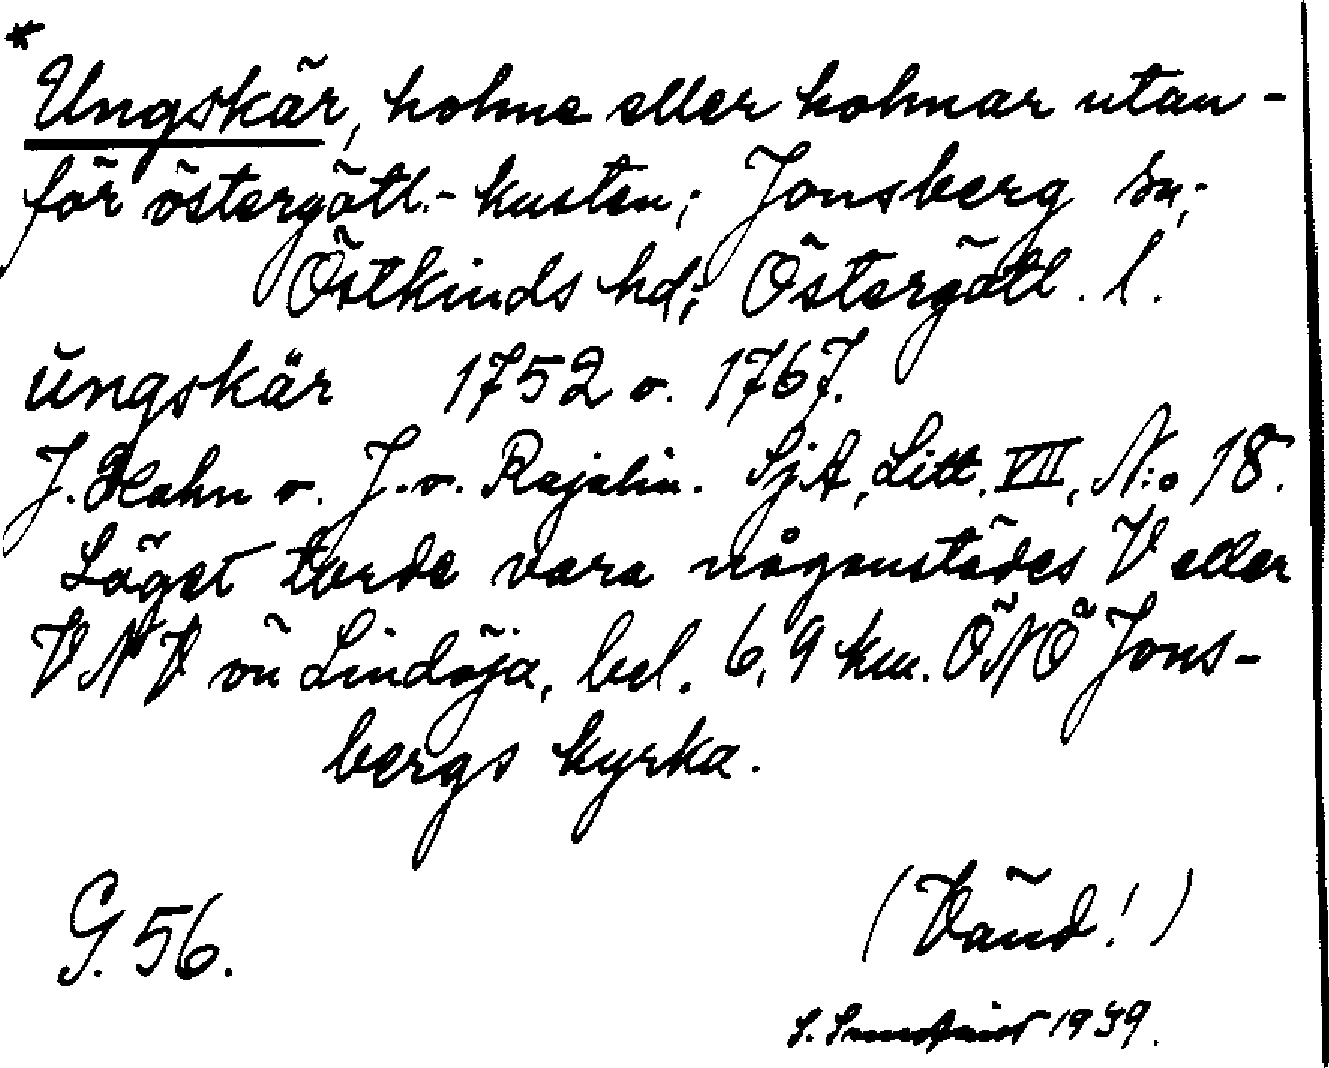 *
Ungskär, holme eller holmar utan-
för östergötl.-kusten; Jonsberg sn;
Östkinds hd; Östergötl. l.
ŭngskär 1752 o. 1767.
J. Hahn o. J. v. Rajalin. SjA, Litt. VII, N:o 18.
Läget torde vara någonstädes V eller
VNV om Lindöja, bel. 6,9 km. ÖNÖ Jons-
bergs kyrka.
G. 56.
(Vänd!)
S. 1939.